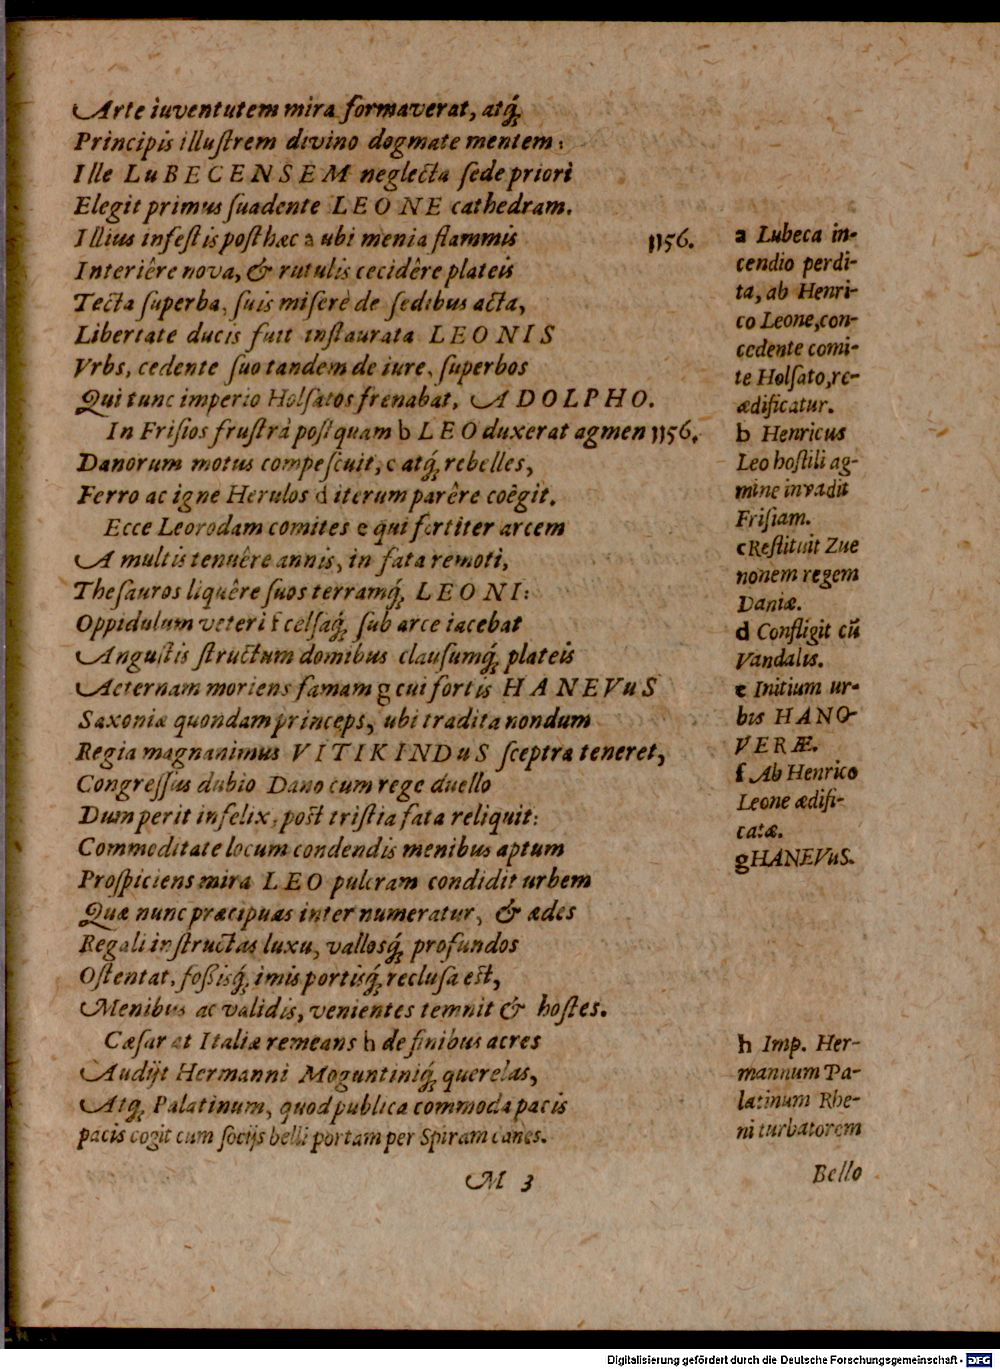 Arte iuventutem mira formaverat, atq́;
Principis illuſtrem divino dogmate mentem:
Ille LuBECENSEM neglecta ſede priori
Elegit primus ſuadente LEONE cathedram.
Illius infeſtis poſthæc a ubi menia flammis 1156.
Interiêre nova, & rutulis cecidêre plateis
Tecta ſuperba, ſuis miſerè de ſedibus acta,
Libertate ducis fuit inſtaurata LEONIS
Vrbs, cedente ſuo tandem de iure, ſuperbos
Qui tunc imperio Holſatos frenabat, ADOLPHO.
In Friſios fruſtrà poſtquam b LEO duxerat agmen 1156.
Danorum motus compeſcuit, c atq́; rebelles,
Ferro ac igne Herulos d iterum parêre coêgit.
Ecce Leorodam comites e qui fortiter arcem
A multis tenuêre annis, in fata remoti,
Theſauros liquêre ſuos terramq́; LEONI:
Oppidulum veteri f celſaq́; ſub arce iacebat
Anguſtis ſtructum domibus clauſumq́; plateis
Aeternam moriens famam g cui fortis HANEVuS
Saxoniæ quondam princeps, ubi tradita nondum
Regia magnanimus VITIKINDuS ſceptra teneret,
Congreſſus dubio Dano cum rege duello
Dum perit infelix, poſt triſtia fata reliquit:
Commoditate locum condendis menibus aptum
Proſpiciens mira LEO pulcram condidit urbem
Quæ nunc præcipuas inter numeratur, & ædes
Regali inſtructas luxu, vallosq́; profundos
Oſtentat, foſsisq́; imis portisq́; recluſa eſt,
Menibus ac validis, venientes temnit & hoſtes.
Cæſar at Italiæ remeans h de finibus acres
Audijt Hermanni Moguntiniq́; querelas,
Atq; Palatinum, quod publica commoda pacis
pacis cogit cum ſocijs belli portam per Spiram canes.
M 3
a Lubeca in-
cendio perdi-
ta, ab Henri-
co Leone, con-
cedente comi-
te Holſato, re-
ædificatur.
b Henricus
Leo hoſtili ag-
mine invadit
Friſiam.
c Reſtituit Zue
nonem regem
Daniæ.
d Confligit cū
Vandalis.
e Initium ur-
bis HANO-
VERÆ.
f Ab Henrico
Leone ædifi-
catæ.
g HANEVuS.
h Imp. Her-
mannum Pa-
latinum Rhe-
ni turbatorem
Bello
Digitalisierung gefördert durch die Deutsche Forschungsgemeinschaft - DFG